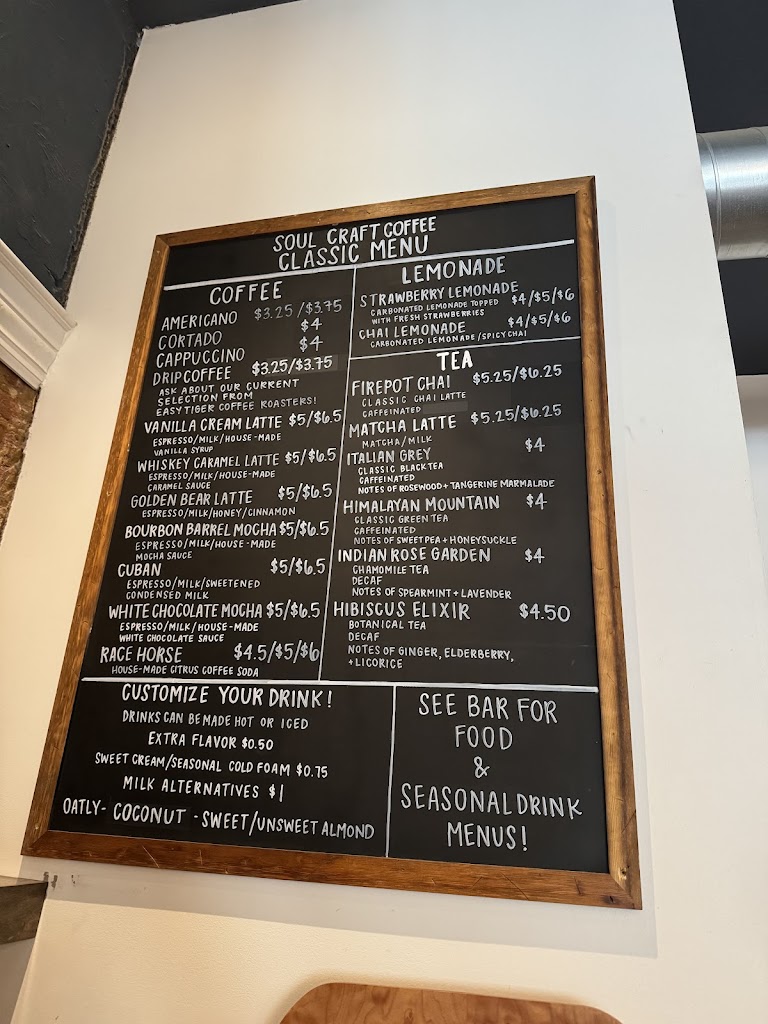 SOUL CRAFT COFFEE
CLASSIC MENU
COFFEE
AMERICANO $3.25/$3.75
CORTADO $4
CAPPUCCINO $4
DRIP COFFEE $3.25/$3.75
ASK ABOUT OUR CURRENT
SELECTION FROM
EASY TIGER COFFEE ROASTERS!
VANILLA CREAM LATTE $5/$6.5
ESPRESSO/MILK/HOUSE-MADE
VANILLA SYRUP
WHISKEY CARAMEL LATTE $5/$6.5
ESPRESSO/MILK/HOUSE-MADE
CARAMEL SAUCE
GOLDEN BEAR LATTE $5/$6.5
ESPRESSO/MILK/HONEY/CINNAMON
BOURBON BARREL MOCHA $5/$6.5
ESPRESSO/MILK/HOUSE-MADE
MOCHA SAUCE
CUBAN $5/$6.5
ESPRESSO/MILK/SWEETENED
CONDENSED MILK
WHITE CHOCOLATE MOCHA $5/$6.5
ESPRESSO/MILK/HOUSE-MADE
WHITE CHOCOLATE SAUCE
RACE HORSE $4.5/$5/$6
HOUSE-MADE CITRUS COFFEE SODA
LEMONADE
STRAWBERRY LEMONADE $4/$5/$6
CARBONATED LEMONADE TOPPED
WITH FRESH STRAWBERRIES
CHAI LEMONADE $4/$5/$6
CARBONATED LEMONADE/SPICY CHAI
TEA
FIREPOT CHAI $5.25/$6.25
CLASSIC CHAI LATTE
CAFFEINATED
MATCHA LATTE $5.25/$6.25
MATCHA/MILK
ITALIAN GREY $4
CLASSIC BLACK TEA
CAFFEINATED
NOTES OF ROSEWOOD + TANGERINE MARMALADE
HIMALAYAN MOUNTAIN $4
CLASSIC GREEN TEA
CAFFEINATED
NOTES OF SWEET PEA + HONEYSUCKLE
INDIAN ROSE GARDEN $4
CHAMOMILE TEA
DECAF
NOTES OF SPEARMINT + LAVENDER
HIBISCUS ELIXIR $4.50
BOTANICAL TEA
DECAF
NOTES OF GINGER, ELDERBERRY,
+ LICORICE
CUSTOMIZE YOUR DRINK!
DRINKS CAN BE MADE HOT OR ICED
EXTRA FLAVOR $0.50
SWEET CREAM/SEASONAL COLD FOAM $0.75
MILK ALTERNATIVES $1
OATLY - COCONUT - SWEET/UNSWEET ALMOND
SEE BAR FOR
FOOD
&
SEASONAL DRINK
MENUS!